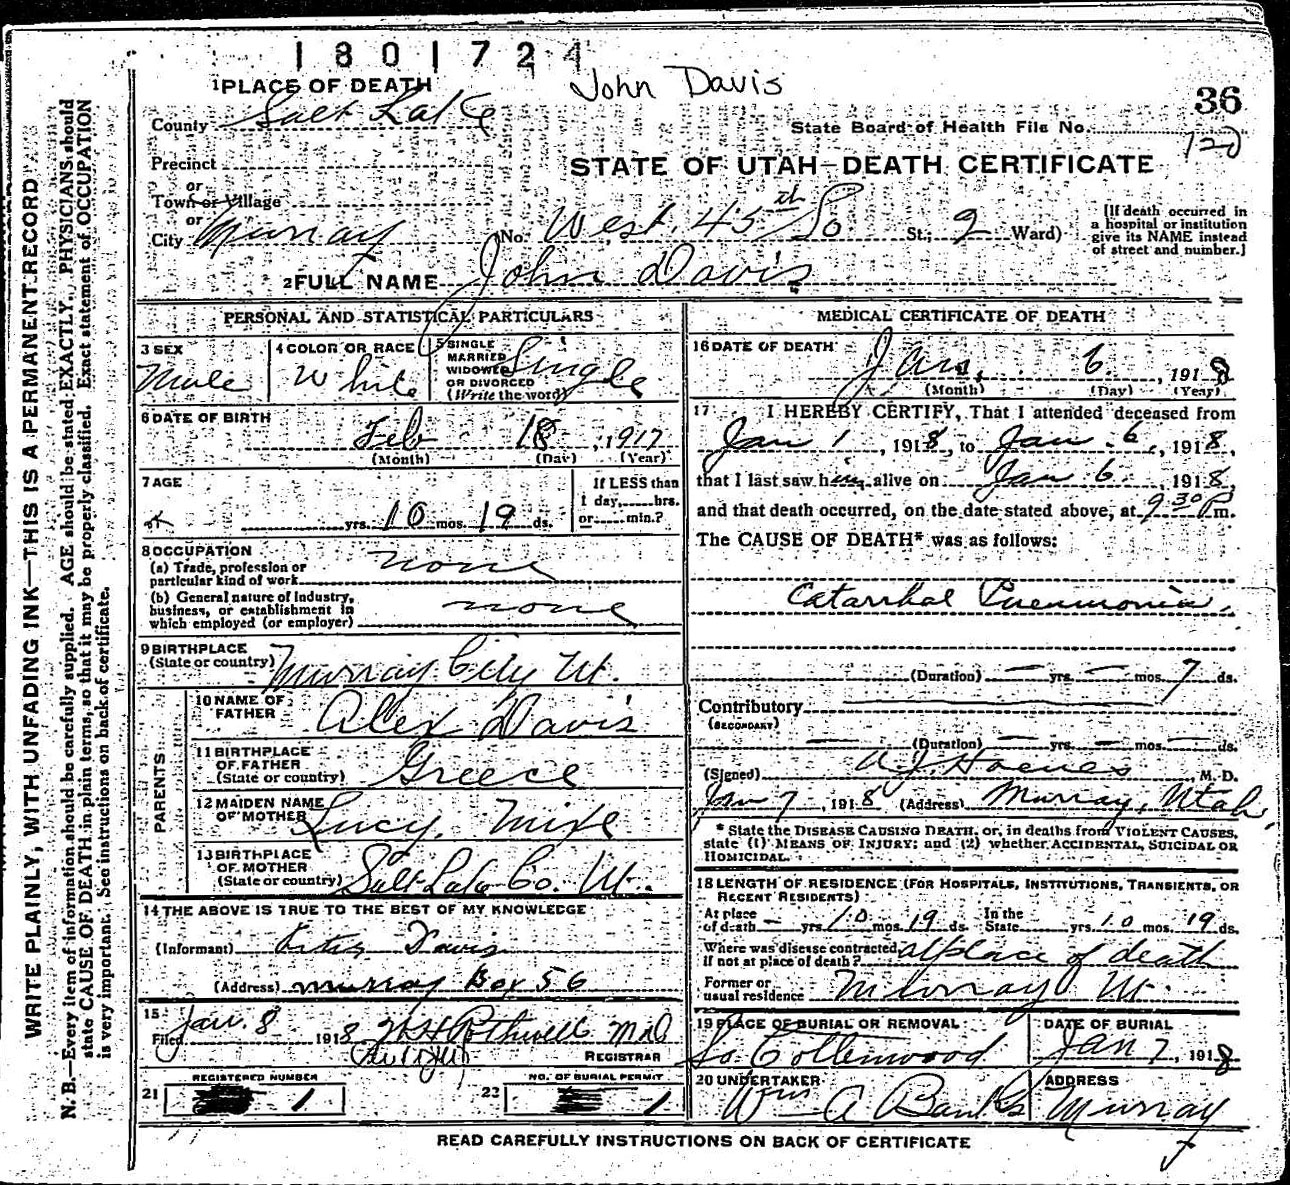 1801724
John Davis
36
120
1 PLACE OF DEATH
County Salt Lake
State Board of Health File No.
Precinct
or
STATE OF UTAH—DEATH CERTIFICATE
Town or Village
or
City Murray No. West 45th So St.; 2 Ward)
[If death occurred in
a hospital or institution
give its NAME instead
of street and number.]
2 FULL NAME John Davis
PERSONAL AND STATISTICAL PARTICULARS
3 SEX
Male
4 COLOR OR RACE
White
5 SINGLE
MARRIED
WIDOWED
OR DIVORCED
(Write the word)
Single
6 DATE OF BIRTH
Feb 18, 1917
(Month) (Day) (Year)
7 AGE
yrs. 10 mos. 19 ds.
If LESS than
1 day, hrs.
or min.?
8 OCCUPATION
(a) Trade, profession or
particular kind of work none
(b) General nature of industry,
business, or establishment in
which employed (or employer) none
9 BIRTHPLACE
(State or country) Murray City Ut.
PARENTS
10 NAME OF
FATHER Alex Davis
11 BIRTHPLACE
OF FATHER
(State or country) Greece
12 MAIDEN NAME
OF MOTHER Lucy
13 BIRTHPLACE
OF MOTHER
(State or country) Salt Lake Co. Ut.
14 THE ABOVE IS TRUE TO THE BEST OF MY KNOWLEDGE
(Informant) Davis
(Address) Murray Box 56
15
Filed Jan. 8 1918 Rothwell MD
REGISTRAR
REGISTERED NUMBER
21 1
NO. OF BURIAL PERMIT
22 1
MEDICAL CERTIFICATE OF DEATH
16 DATE OF DEATH
Jan. 6, 1918
(Month) (Day) (Year)
17 I HEREBY CERTIFY, That I attended deceased from
Jan 1, 1918, to Jan. 6, 1918,
that I last saw him alive on Jan 6 1918,
and that death occurred, on the date stated above, at 9 30 P m.
The CAUSE OF DEATH* was as follows:
Catarrhal Pneumonia.
(Duration) — yrs. — mos. 7 ds.
Contributory
(SECONDARY)
— (Duration) — yrs. — mos. — ds.
(Signed) A. J. , M. D.
Jan 7, 1918 (Address) Murray, Utah.
* State the DISEASE CAUSING DEATH, or, in deaths from VIOLENT CAUSES,
state (1) MEANS OF INJURY; and (2) whether ACCIDENTAL, SUICIDAL OR
HOMICIDAL.
18 LENGTH OF RESIDENCE (FOR HOSPITALS, INSTITUTIONS, TRANSIENTS, OR
RECENT RESIDENTS)
At place
of death — yrs. 10 mos. 19 ds.
In the
State yrs. 10 mos. 19 ds.
Where was disease contracted
if not at place of death? at place of death
Former or
usual residence Murray Ut.
19 PLACE OF BURIAL OR REMOVAL
So Cottenwood
DATE OF BURIAL
Jan 7, 1918
20 UNDERTAKER
Wm A Banks
ADDRESS
Murray
READ CAREFULLY INSTRUCTIONS ON BACK OF CERTIFICATE
WRITE PLAINLY, WITH UNFADING INK—THIS IS A PERMANENT RECORD
N. B.—Every item of information should be carefully supplied. AGE should be stated EXACTLY. PHYSICIANS should
state CAUSE OF DEATH in plain terms, so that it may be properly classified. Exact statement of OCCUPATION
is very important. See instructions on back of certificate.